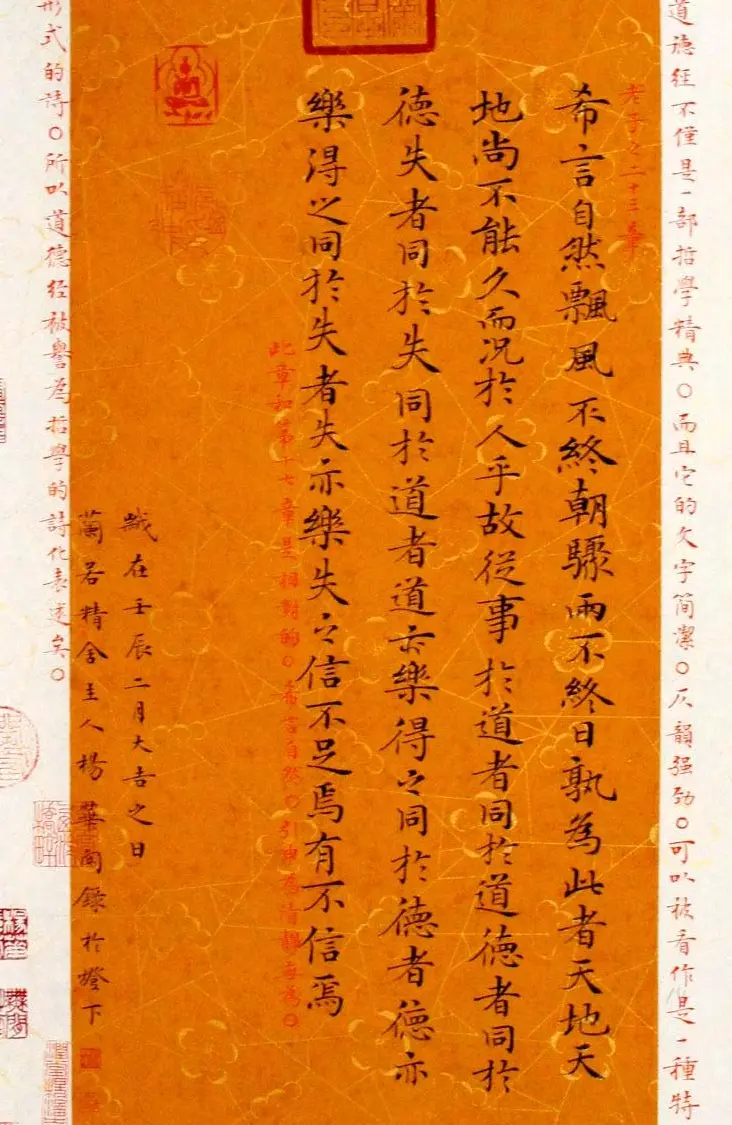 道德经不僅是一部哲學精典○而且它的文字簡潔○仄韻强勁○可以被看作是一種特
老子之二十三章
希言自然飄風不終朝驟雨不終日孰為此者天地天
地尚不能久而况於人乎故從事於道者同於道德者同於
德失者同於失同於道者道亦樂得之同於德者德亦
樂得之同於失者失亦樂失之信不足焉有不信焉
此章和第十七章是相對的○希言自然○引申為清靜無為○
歲在壬辰二月大吉之日
蘭若精舍主人楊華錄於燈下
形式的詩○所以道德经被譽為哲學的詩化表述矣○